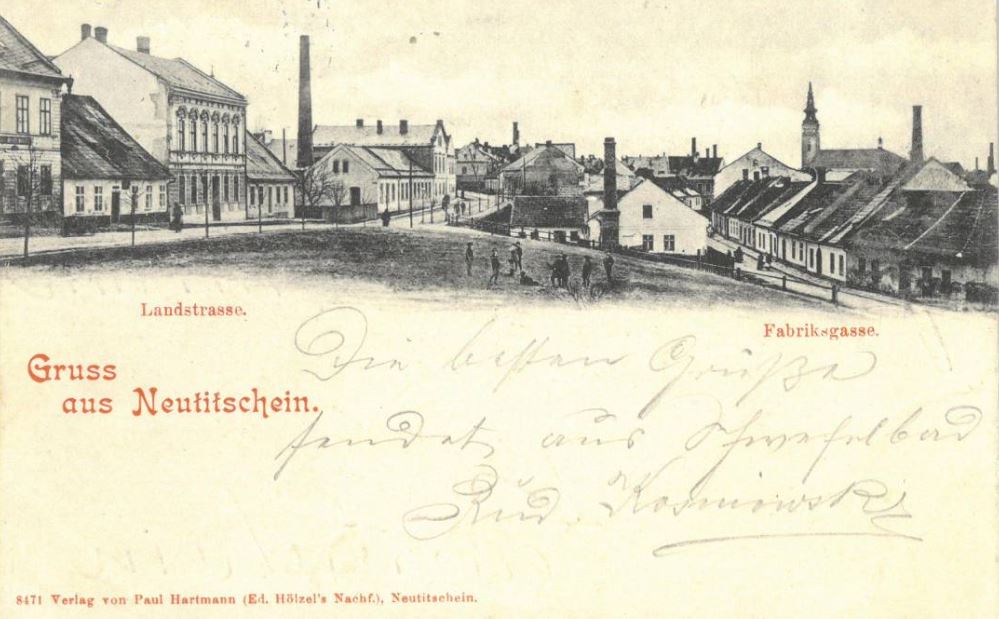 Landstrasse.
Fabriksgasse.
Gruss
aus Neutitschein.
Die besten Grüße
sendet aus Schwefelbad
Rud. Kosniowski
8471 Verlag von Paul Hartmann (Ed. Hölzel's Nachf.), Neutitschein.